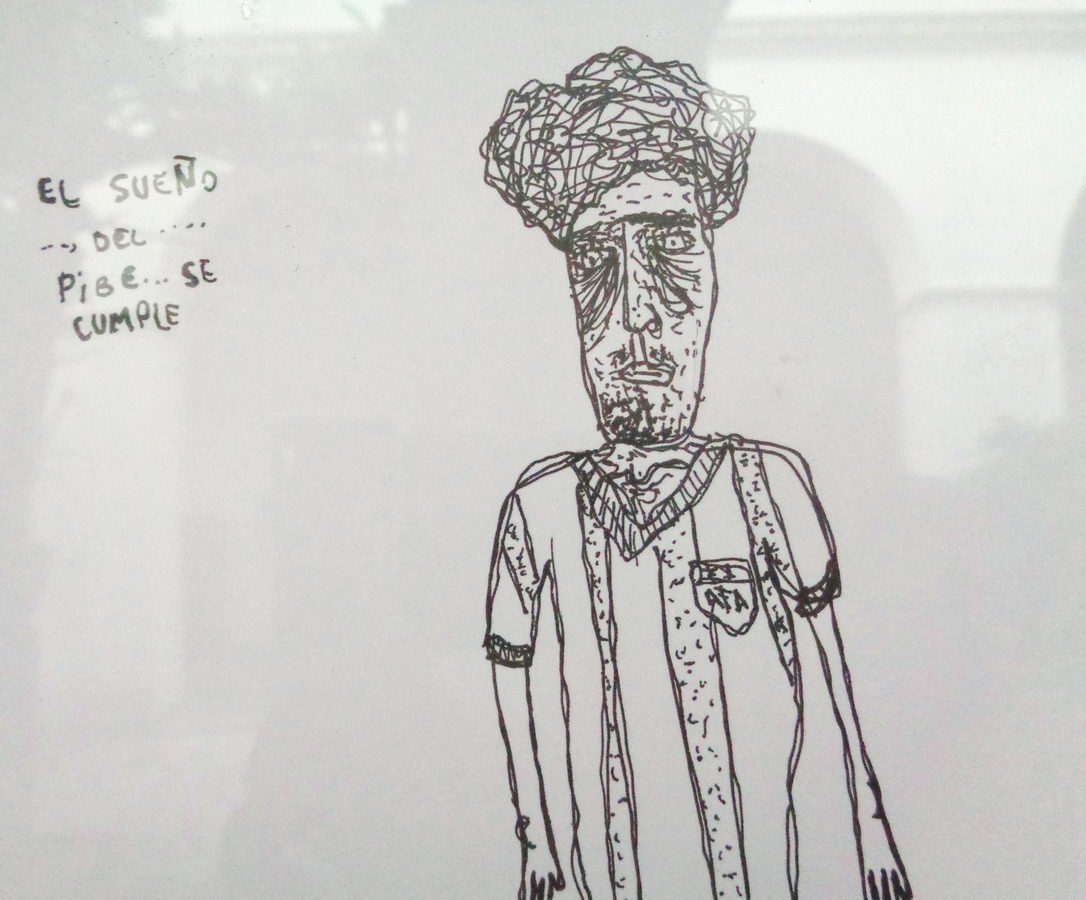 EL SUEÑO
..., DEL .....
PiBE... SE
CUMPLE
AFA